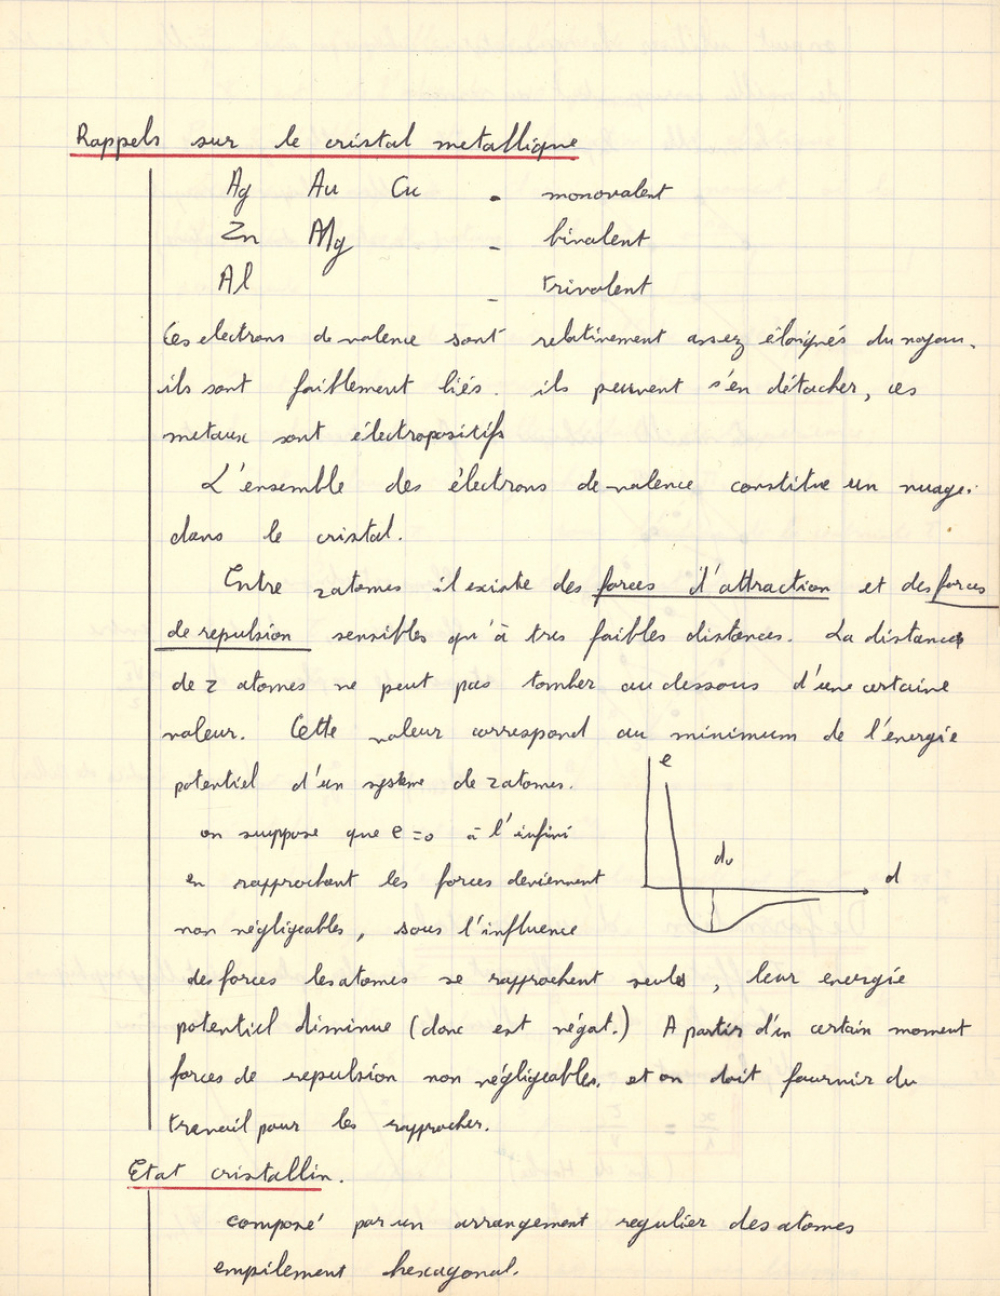 Rappels sur le cristal metallique
Ag Au Cu - monovalent
Zn Mg - bivalent
Al - trivalent
Ces electrons de valence sont relativement assez éloignés du noyau.
ils sont faiblement liés. ils peuvent s'en détacher, ces
metaux sont électropositifs
L'ensemble des électrons de valence constitue un nuage
dans le cristal.
Entre 2 atomes il existe des forces d'attraction et des forces
de repulsion sensibles qu'à tres faibles distances. La distance
de 2 atomes ne peut pas tomber au dessous d'une certaine
valeur. Cette valeur correspond au minimum de l'énergie
potentiel d'un système de 2 atomes.
e
on suppose que e = 0 à l'infini
do
en rapprochant les forces deviennent
d
non négligeables, sous l'influence
des forces les atomes se rapprochent seuls, leur energie
potentiel diminue (donc est négat.) A partir d'un certain moment
forces de repulsion non négligeables, et on doit fournir du
travail pour les rapprocher.
Etat cristallin.
composé par un arrangement regulier des atomes
empilement hexagonal.